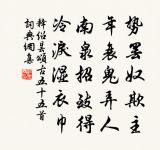 势罢奴欺主
年衰鬼弄人
南泉招鼓得
冷淚湿衣巾
释绍昙颂古五十五首
詞典網集